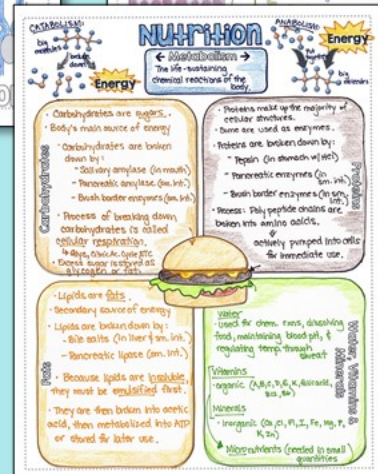 CATABOLISM:
big
molecules
broken
down
Energy
Nutrition
Metabolism
The life-sustaining
chemical reactions of the
body.
ANABOLISM:
Energy
Put
together
big
molecules
Carbohydrates
• Carbohydrates are sugars.
• Body's main source of energy
• Carbohydrates are broken
down by:
- Salivary amylase (in mouth)
- Pancreatic amylase (sm. int.)
- Brush border enzymes (sm. int.)
• Process of breaking down
carbohydrates is called
cellular respiration.
↳ Glyc, Citric Ac. Cycle, ETC
• Excess sugar is stored as
glycogen or fat.
Proteins
• Proteins make up the majority of
cellular structures.
• Some are used as enzymes.
• Proteins are broken down by:
- Pepsin (in stomach w/HCl)
- Pancreatic enzymes (in
sm. int.)
- Brush border enzymes (in sm.
int.)
• Process: Polypeptide chains are
broken into amino acids.
↓
actively pumped into cells
for immediate use.
Fats
• Lipids are fats.
• Secondary source of energy
• Lipids are broken down by:
- Bile salts (in liver & sm. int.)
- Pancreatic lipase (sm. int.)
• Because lipids are insoluble,
they must be emulsified first.
• They are then broken into acetic
acid, then metabolized into ATP
or stored for later use.
Water, Vitamins &
Minerals
Water
• used for chem. rxns, dissolving
food, maintaining blood pH, &
regulating temp. through
sweat
Vitamins
- organic
Minerals
- Inorganic
Micronutrients (needed in small
quantities